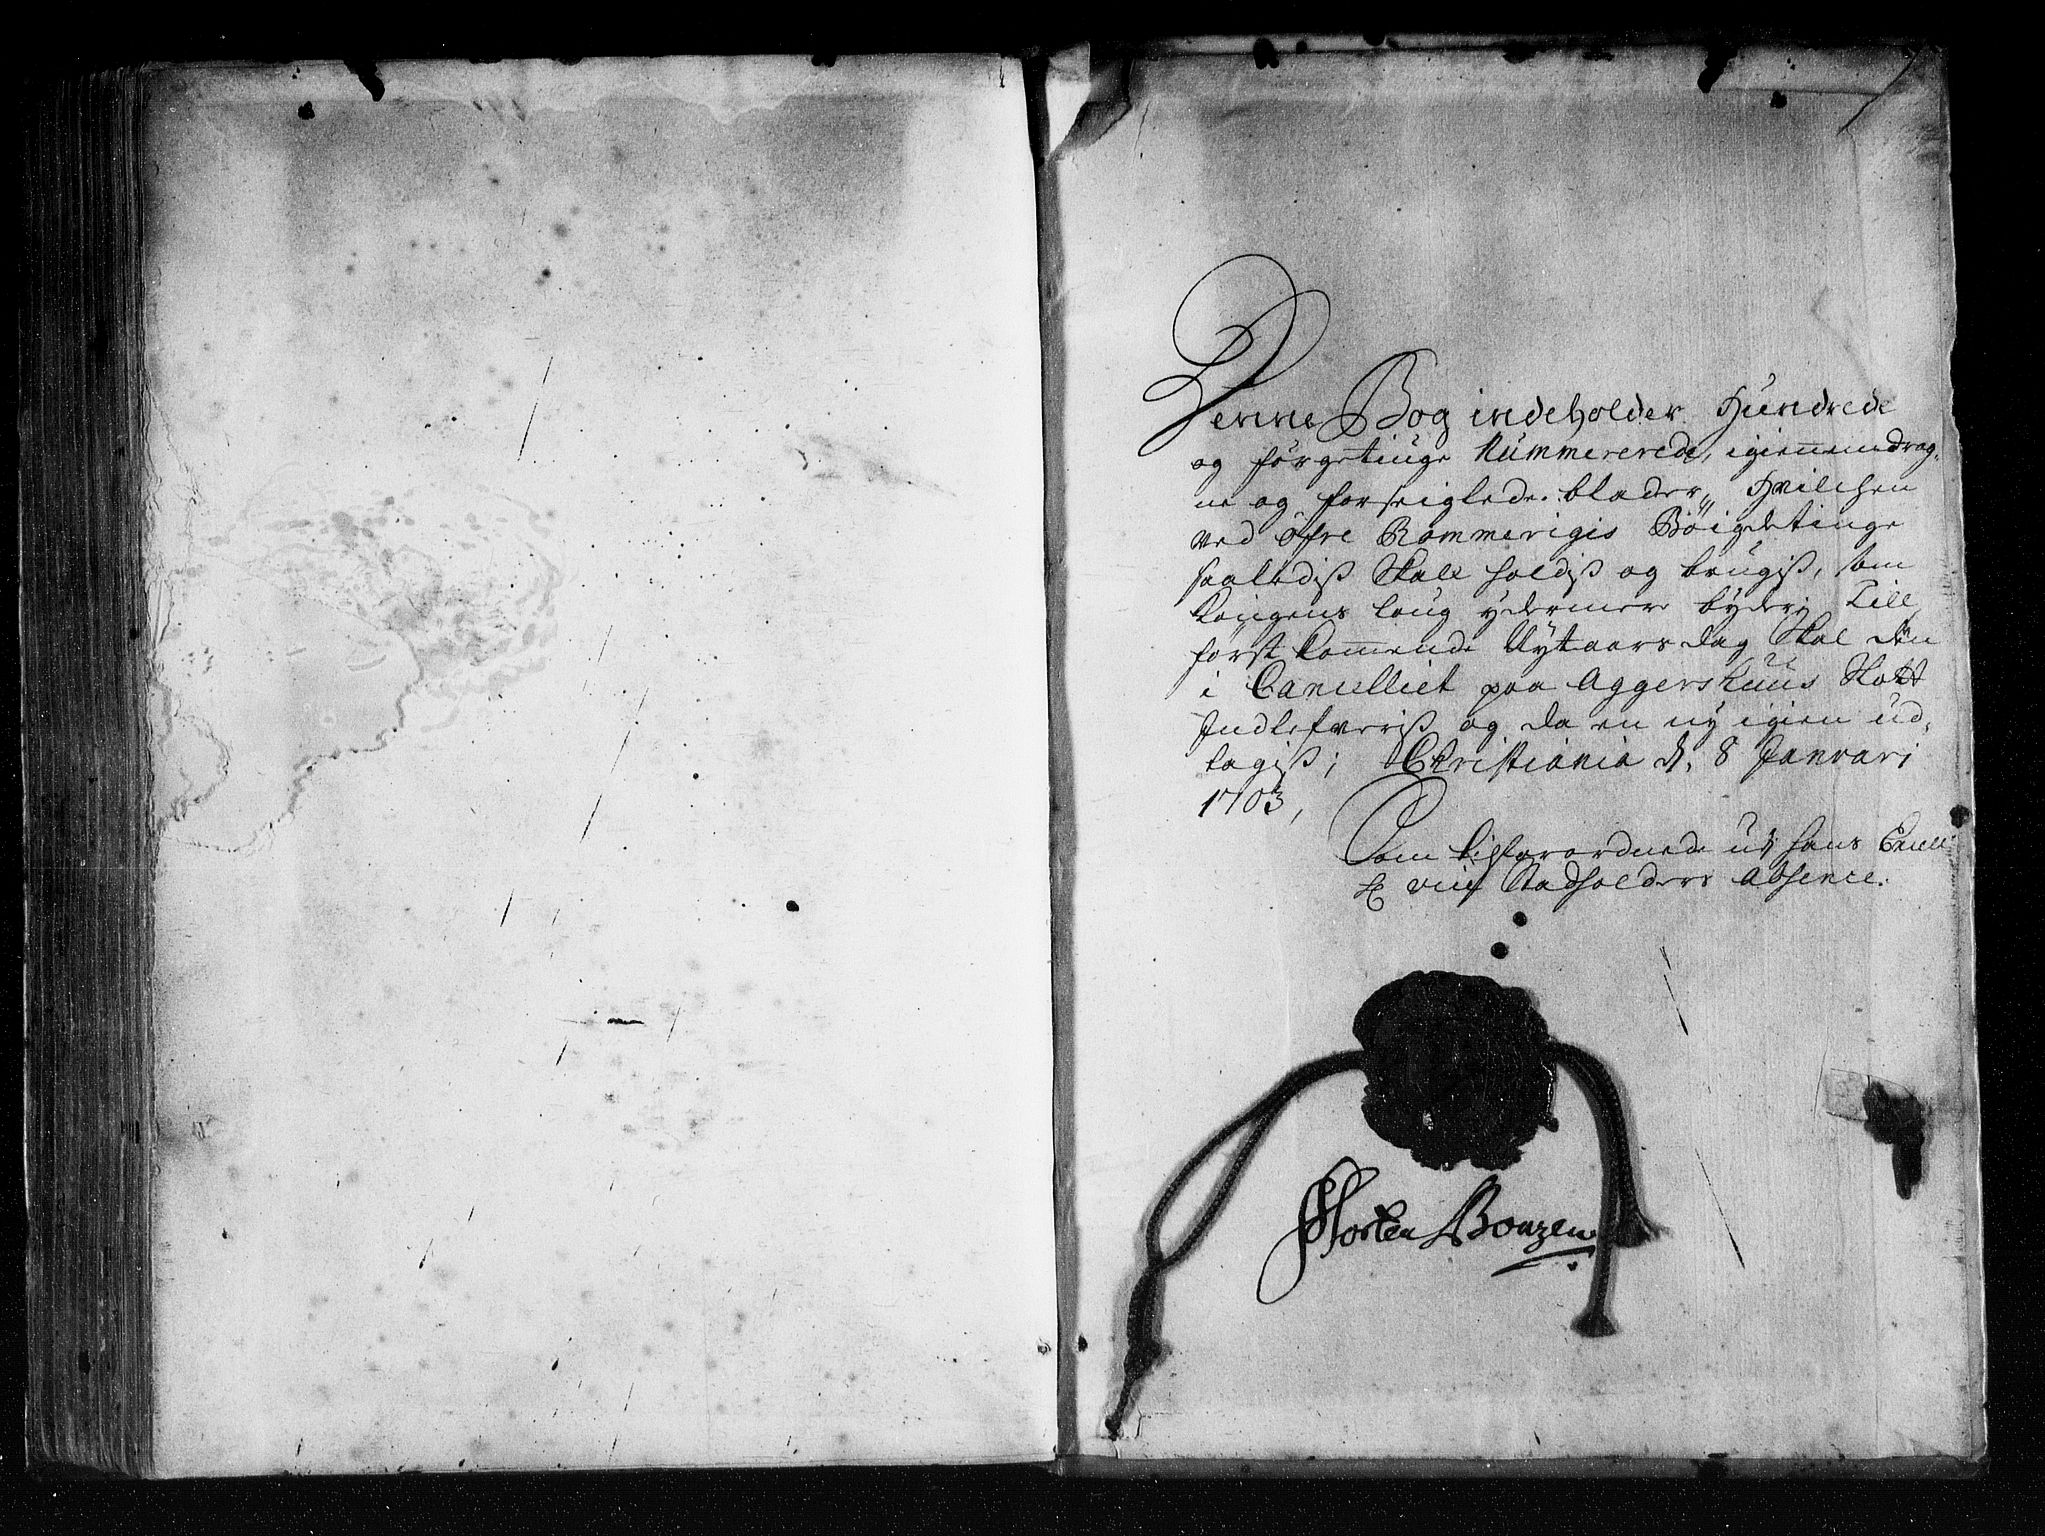 Denne Bog indeholder Hundrede
og förgetiuge Nummererede, igiennemdrag,
ne og forseiglede blader, Hvilchen
ved öfre Rommerigis Böigdetinge
saaledis Skall holdis og brugis, som
Kongens loug ydermere byder; Till
först kommende Nytaars dag Skal den
i Cancelliet paa Aggershuus Slott
Indlefveris og da en ny igien ud,
tagis; Christiania d. 8 Januari
1703,
Som tilforordnede udj hans Excell
vice Stadholders Absence.
Morten Bonzen